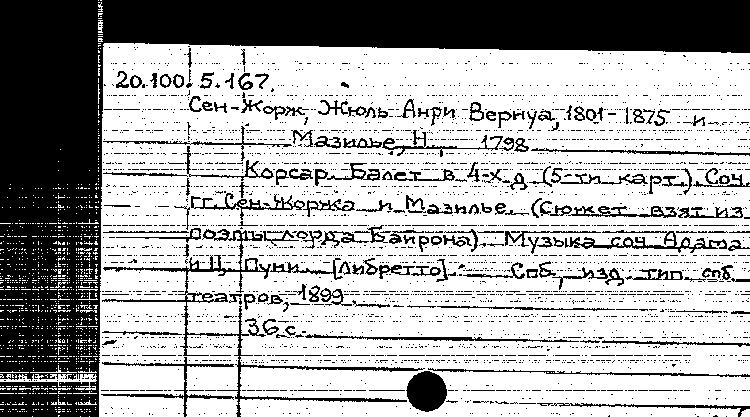 20.100.5.167.
Сен-Жорж, Жюль Анри Вернуа, 1801-1875 и
Мазилье, Н., 1798
Корсар. Балет в 4-х д. (5-ти карт.). Соч.
гг. Сен-Жоржа и Мазилье. (Сюжет взят из
поэмы лорда Байрона). Музыка соч. Адама
и Ц. Пуни. [Либретто] - Спб., изд. тип. спб.
театров, 1899.
36 с.